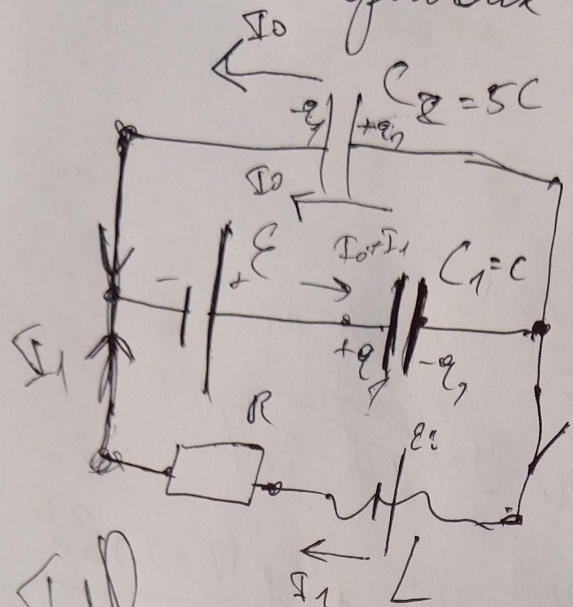 I0
C2 = 5C
-q +q
I0
- ℰ + I0+I1 C1 = C
+q -q
I1
R ℰi
I1 L